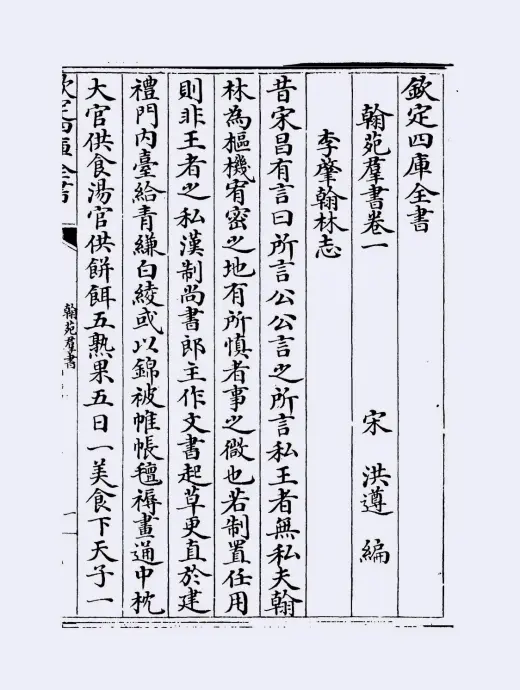 欽定四庫全書
翰苑羣書卷一 宋 洪遵 編
李肇翰林志
昔宋昌有言曰所言公公言之所言私王者無私夫翰
林為樞機宥密之地有所慎者事之微也若制置任用
則非王者之私漢制尚書郎主作文書起草更直於建
禮門內臺給青縑白綾或以錦被帷帳氊褥畫通中枕
大官供食湯官供餅餌五熟果五日一美食下天子一
欽定四庫全書
翰苑羣書
一